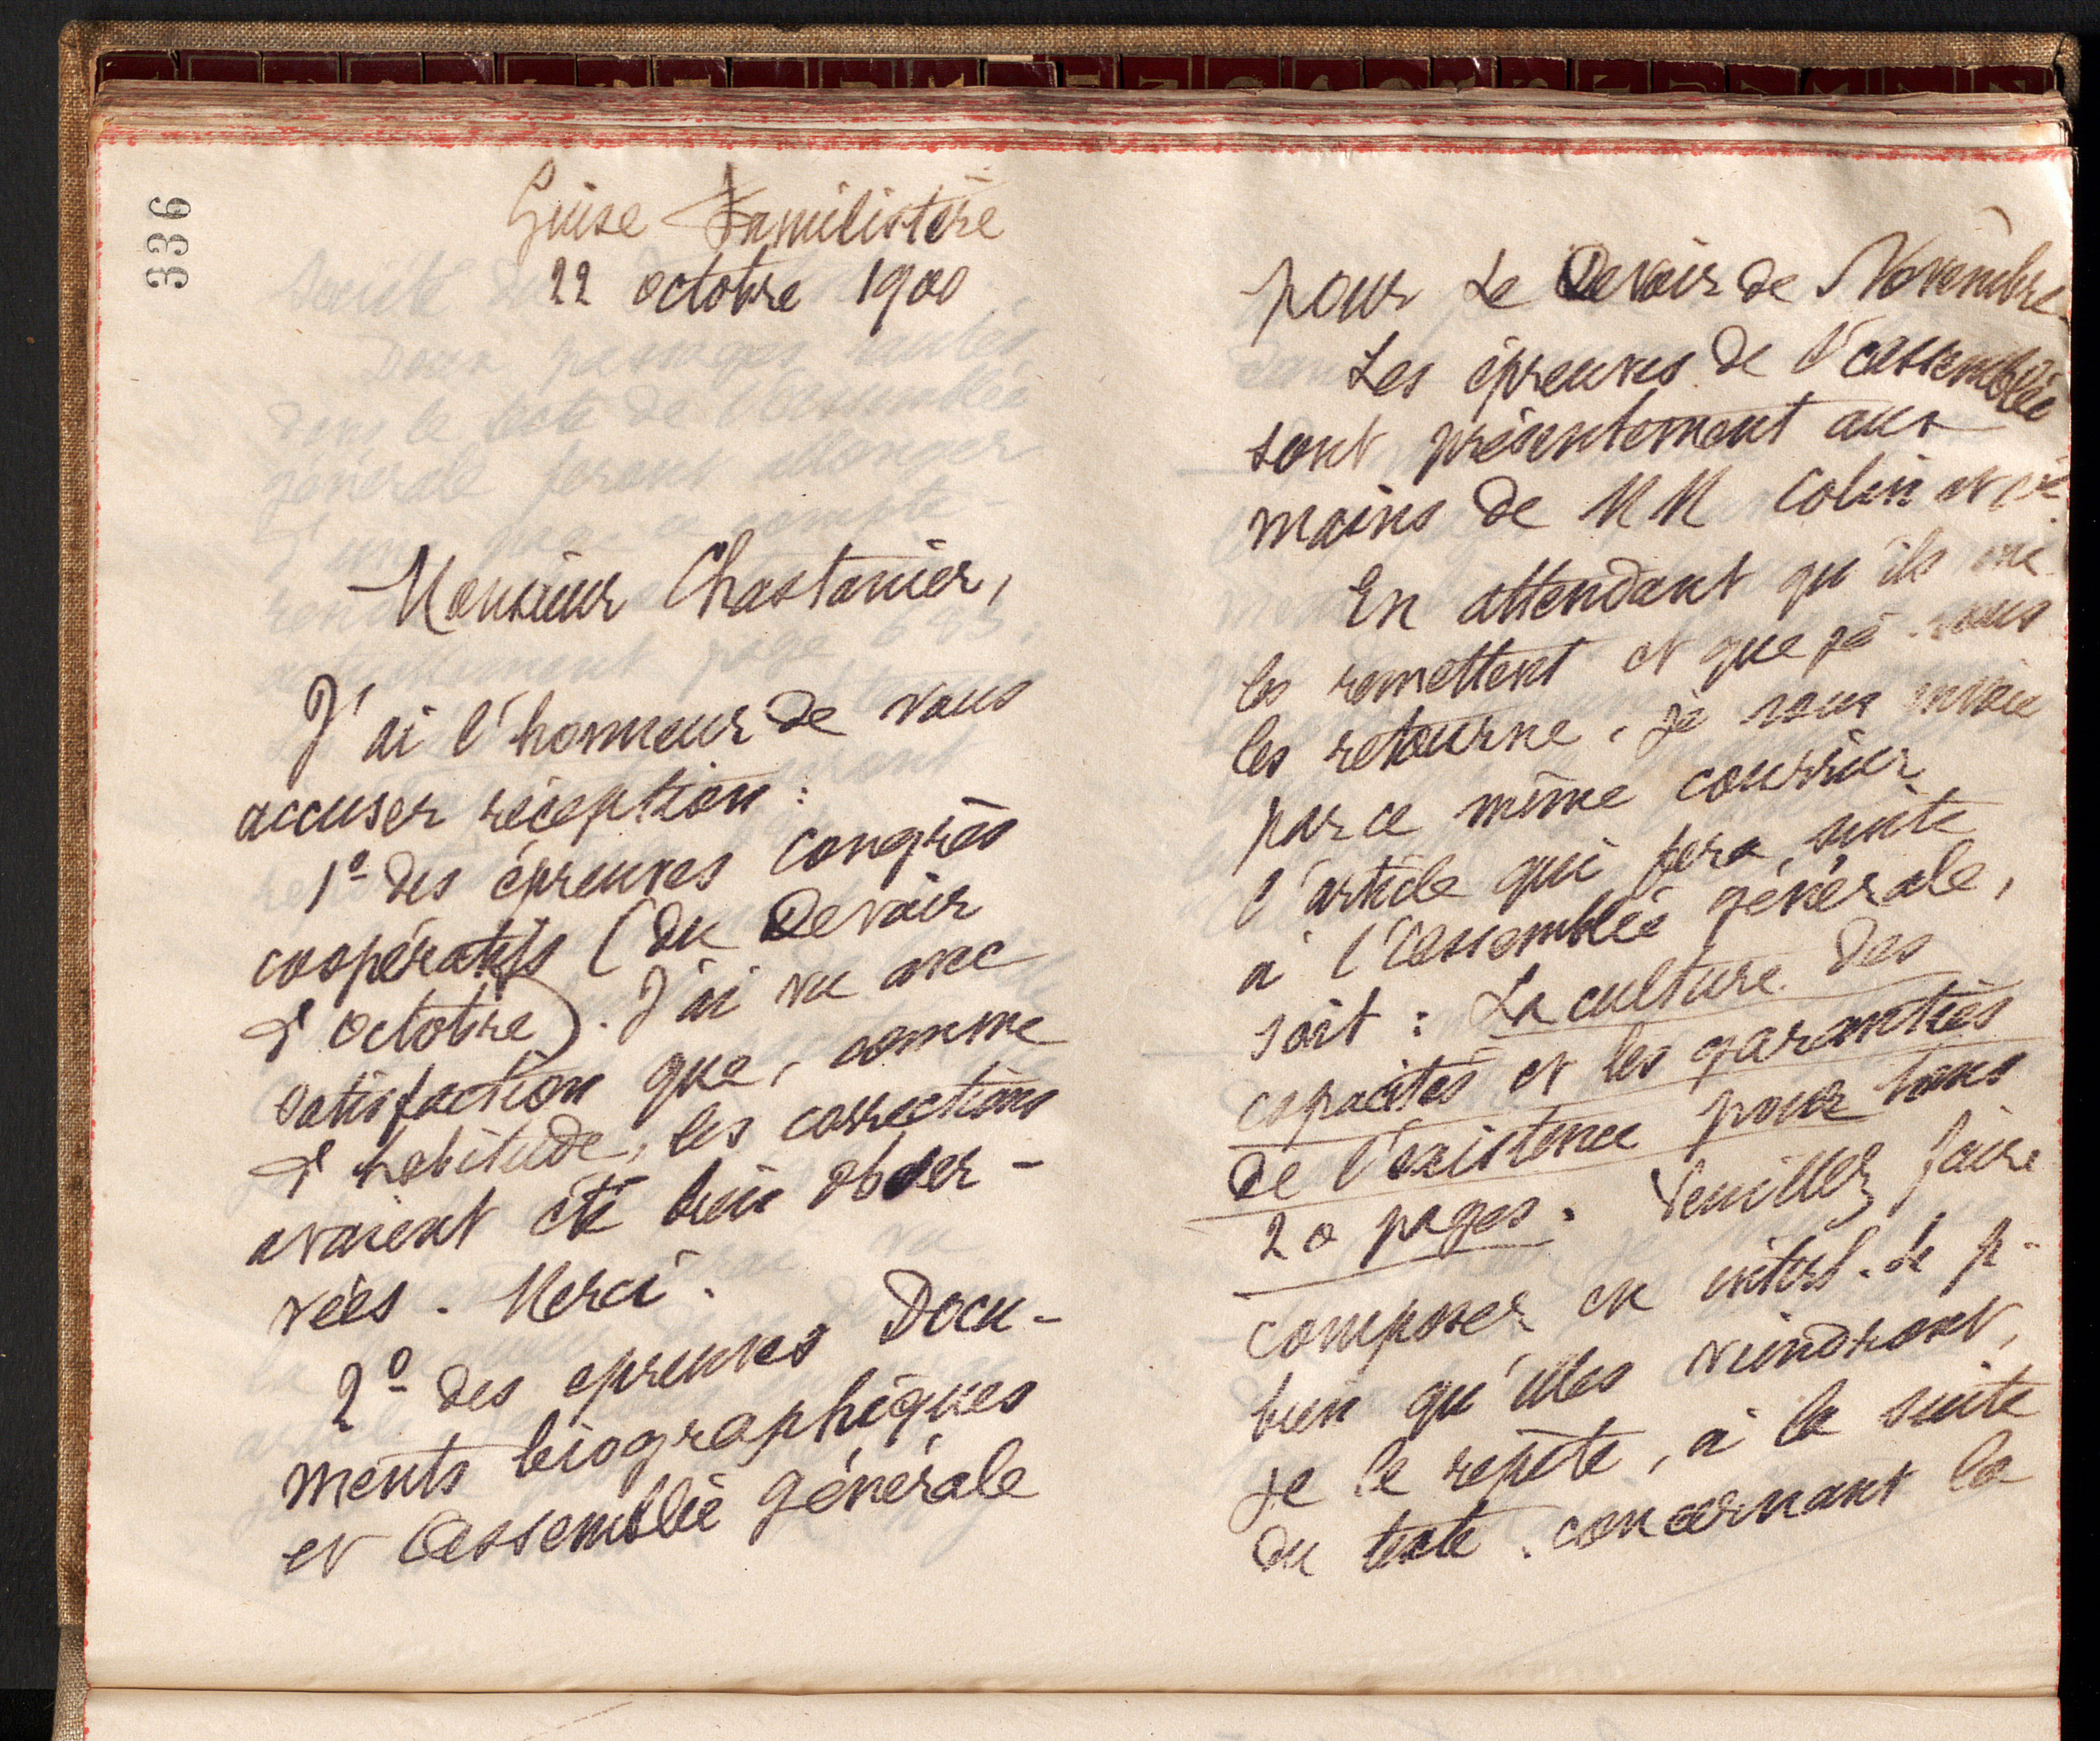 336
Guise Familistère
22 octobre 1900
Monsieur Chastanier,
J'ai l'honneur de vous
accuser réception :
1º des épreuves Congrès
coopératifs (du Devoir
d'octobre). J'ai vu avec
satisfaction que, comme
d'habitude, les corrections
avaient été bien obser-
vées. Merci.
2º des épreuves Docu-
ments biographiques
et Assemblée générale
pour Le Devoir de Novembre.
Les épreuves de l'assemblée
sont présentement aux
mains de MM Colin et
En attendant qu'ils me
les remettent et que je vous
les retourne, je vous envoie
par ce même courrier
l'article qui fera suite
à l'assemblée générale,
soit : La culture des
capacités et les garanties
de l'existence pour tous
20 pages. Veuillez faire
composer en interl. de p.
bien qu'elles viendront,
je le répète, à la suite
du texte concernant la